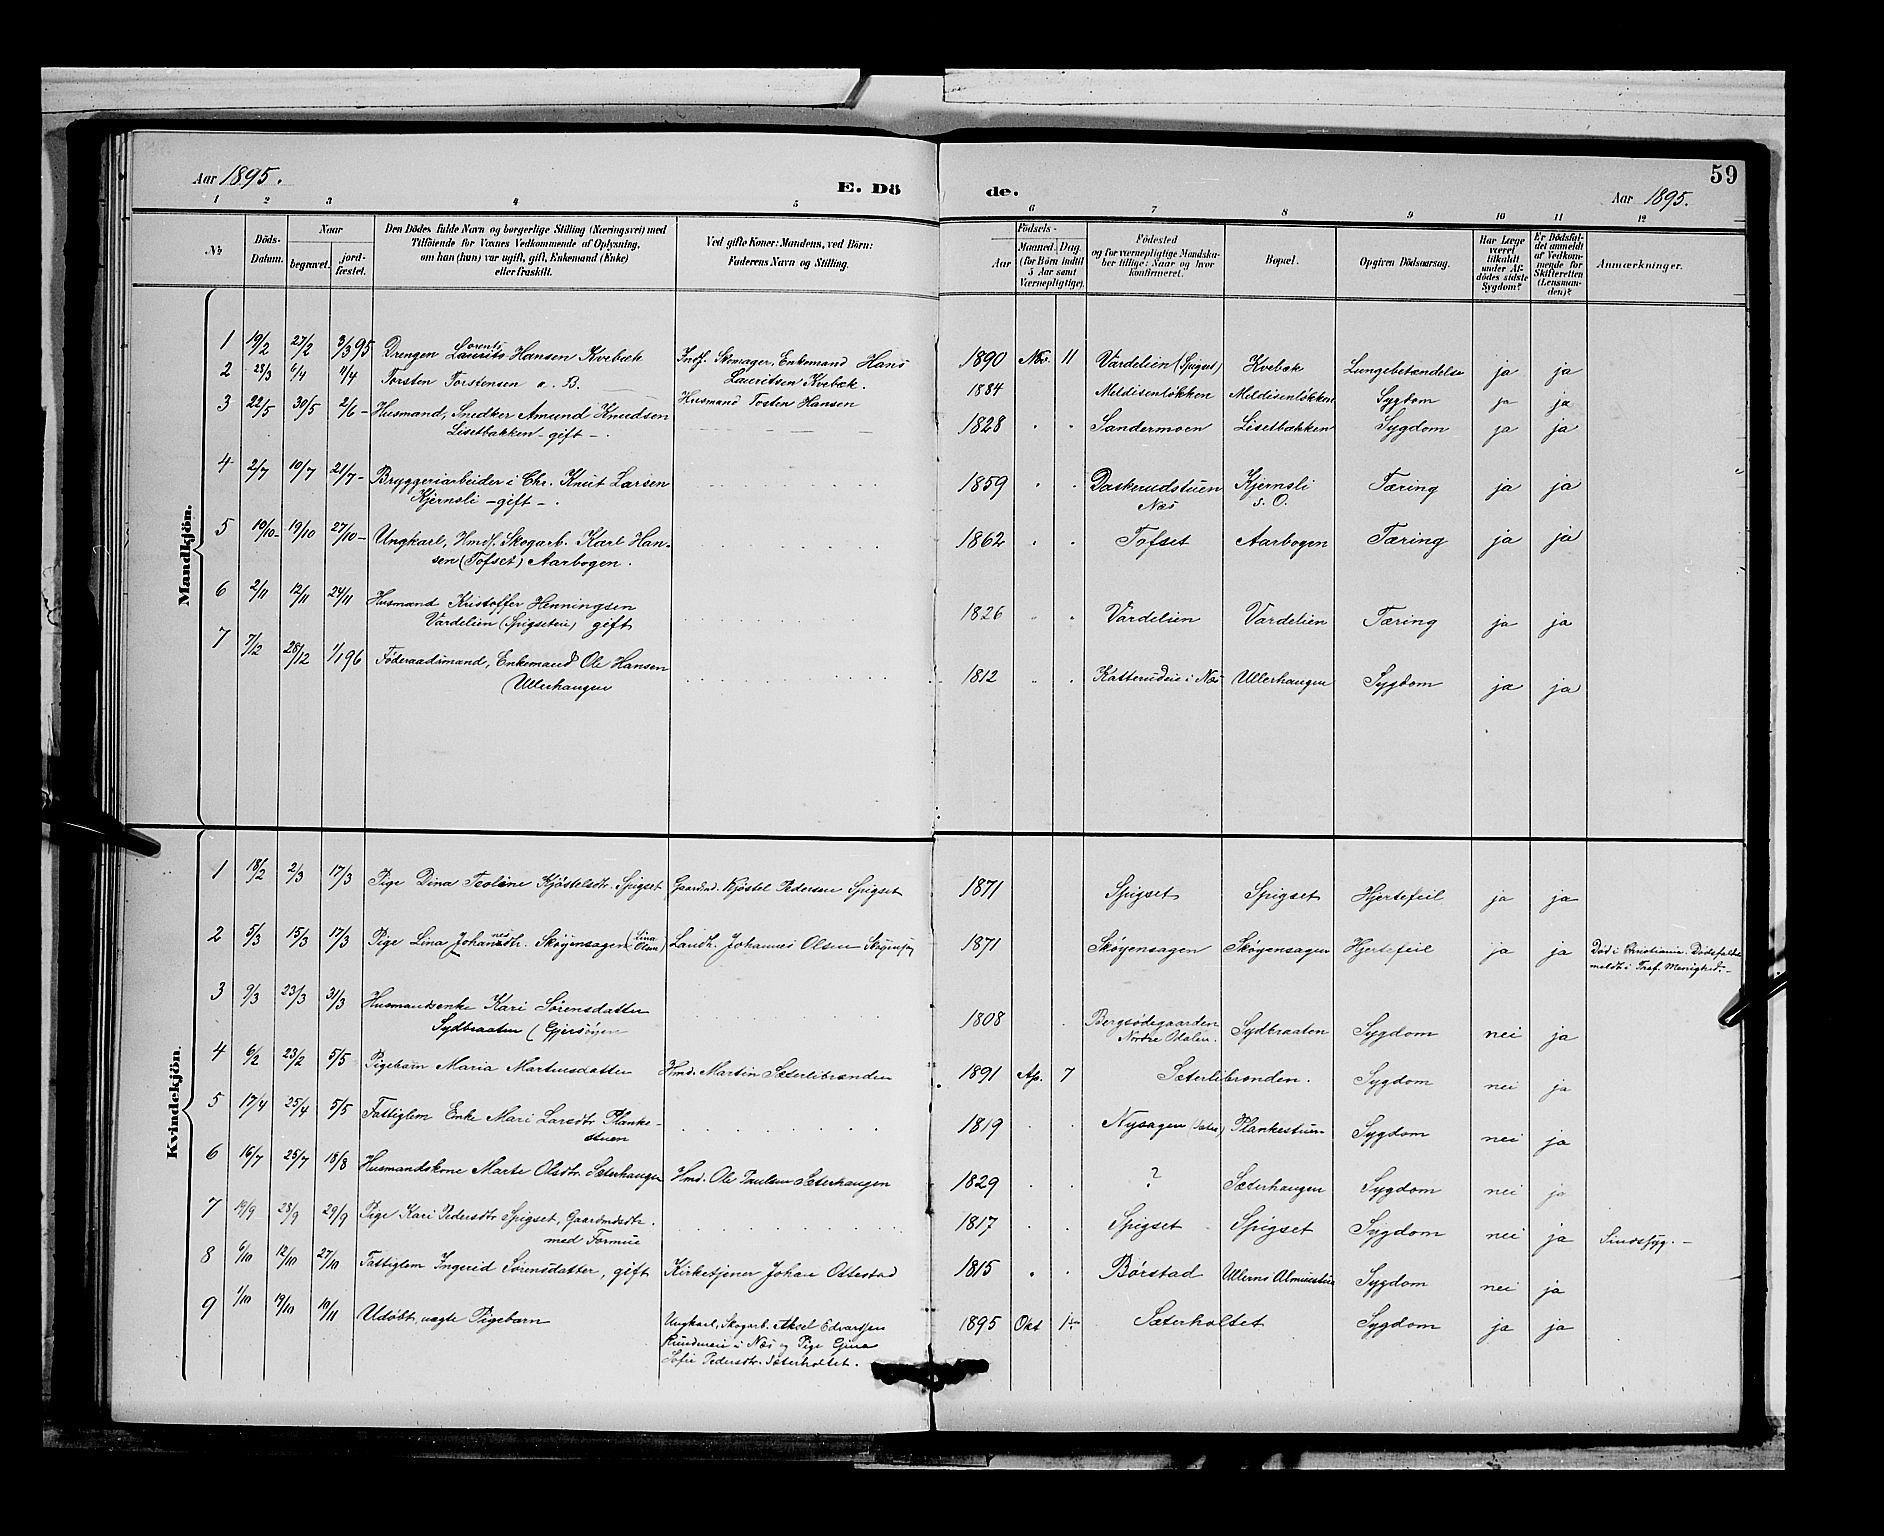 Aar 1895.
E. Dö
de.
59
Aar 1895.
1 2 3 4 5 6 7 8 9 10 11 12
№
Döds-Datum.
Naar
begravet.
jord-fæstet.
Den Dödes fulde Navn og borgerlige Stilling (Næringsvei) med
Tilföiende for Voxnes Vedkommende af Oplysning,
om han (hun) var ugift, gift, Enkemand (Enke)
eller fraskilt.
Ved gifte Koner: Mandens, ved Börn:
Faderens Navn og Stilling.
Födsels-
Aar
Maaned. Dag.
(for Börn indtil
5 Aar samt
Værnepligtige).
Födested
og for værnepligtige Mandska-
ber tillige: Naar og hvor
konfirmeret.
Bopæl.
Opgiven Dödsaarsag.
Har Læge
været
tilkaldt
under Af-
dödes sidste
Sygdom?
Er Dödsfal-
det anmeldt
af Vedkom-
mende for
Skifteretten
(Lensman-
den)?
Anmærkninger.
Mandkjön.
1 19/2 27/2 3/3 95 Drengen Laurits Hansen Kvebæk Indf. Skomager, Enkemand Hans 1890 Nov. 11 Vardelien (Spigset) Kvebæk Lungebetændelse ja ja
Lauritsen Kvebæk.
2 28/3 6/4 11/4 Torsten Torstensen u. B. Husmand Tosten Hansen 1884 Meldisenløkken Meldisenløkken Sygdom ja ja
3 22/5 30/5 2/6 – Husmand, Snedker Amund Knudsen 1828 " " Sandermoen Lisetbakken Sygdom ja ja
Lisetbakken – gift – .
4 2/7 10/7 21/7 – Bryggeriarbeider i Chr. Knut Larsen 1859 " " Daskerudstuen Kjernsli Tæring ja ja
Kjernsli – gift – . Næs s. O.
5 10/10 – 19/10 27/10 – Ungkarl, Hmdf. Skogarb. Karl Han- 1862 " " Tofset Aarbogen Tæring ja ja
sen (Tofset) Aarbogen.
6 2/11 12/11 24/11 Husmand Kristoffer Henningsen 1826 " " Vardelien Vardelien Tæring ja ja
Vardelien (Spigseteie) gift
7 7/12 28/12 1/1 96 Føderaadsmand, Enkemand Ole Hansen 1812 " " Katterudeie i Næs Ullerhaugen Sygdom ja ja
Ullerhaugen
Kvindekjön.
1 18/2 2/3 17/3 Pige Dina Teoline Kjøstelsdtr. Spigset Gaardmd. Kjøstel Pedersen Spigset 1871 Spigset Spigset Hjertefeil ja ja
2 5/3 15/3 17/3 Pige Lina Johannesdtr. Skøyensagen (Lina Olsen) Landh. Johannes Olsen 1871 Skøyensagen Skøyensagen Hjertefeil ja ja Død i Christiania. Dødsfaldet
meldt i Menighed. –
3 9/3 23/3 31/3 Husmandsenke Kari Sørensdatter 1808 . Bergsødegaarden Sydbraaten Sygdom nei ja
Sydbraaten (Gjersøyen Nordre Odalen.
4 6/2 23/2 5/5 Pigebarn Maria Martinsdatter Hmd. Martin Sæterlibrænden 1891 Ap. 7 Sæterlibrønden. Sygdom nei ja
5 17/4 25/4 5/5 Fattiglem Enke Mari Larsdtr Planke- 1819 . . Nysagen Plankestuen Sygdom nei ja
stuen
6 16/7 25/7 18/8 Husmandskone Marte Olsdtr. Sæterhaugen Hmd. Ole Paulsen Sæterhaugen 1829 . . ? Sæterhaugen Sygdom nei ja
7 19/9 28/9 29/9 Pige Kari Pedersdtr Spigset, Gaardmdsdtr. 1817 . . Spigset Spigset Sygdom nei ja Sindssyg. –
med Formue
8 6/10 12/10 27/10 Fattiglem Ingerid Sørensdatter, gift Kirketjener Johan Ottestad 1815 " . Børstad Ullerns Almuestue Sygdom nei ja
9 1/10 19/10 10/11 Udøbt, uægte Pigebarn Ungkarl, Skogarb. Aksel Edvardsen 1895 Okt 1ste Sæterholtet Sygdom ja ja
i Næs og Pige Gina
Sofie Pedersdtr. Sæterholtet.